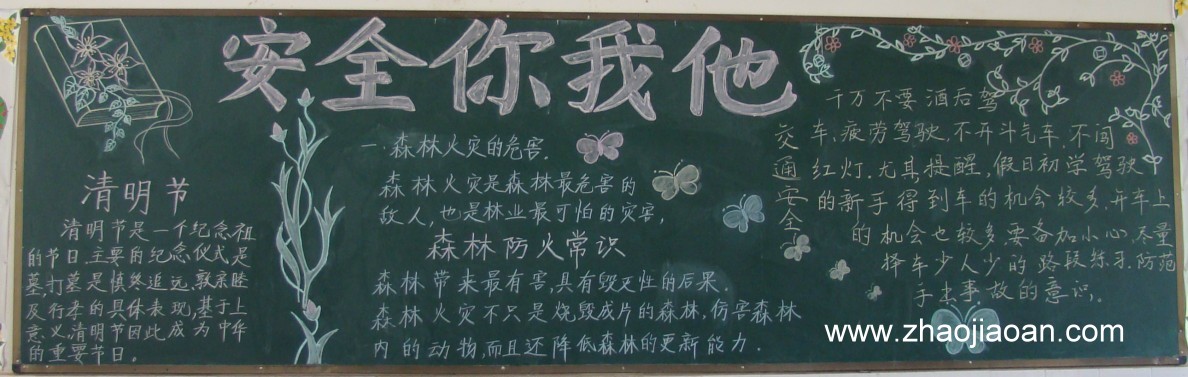 安全你我他
清明节
清明节是一个纪念祖
的节日.主要的纪念仪式是
墓,打墓是慎终追远、敦亲睦
及行孝的具体表现,基于上
意义,清明节因此成为中华
的重要节日。
一.森林火灾的危害.
森林火灾是森林最危害的
敌人,也是林业最可怕的灾害,
森林防火常识
森林带来最有害,具有毁灭性的后果.
森林火灾不只是烧毁成片的森林,伤害森林
内的动物,而且还降低森林的更新能力.
交通安全
千万不要酒后驾
车、疲劳驾驶,不开斗气车.不闯
红灯.尤其提醒,假日初学驾驶
的新手得到车的机会较多.开车上
的机会也较多.要备加小心,尽量
择车少人少的路段练习.防范
事故的意识.
www.zhaojiaoan.com